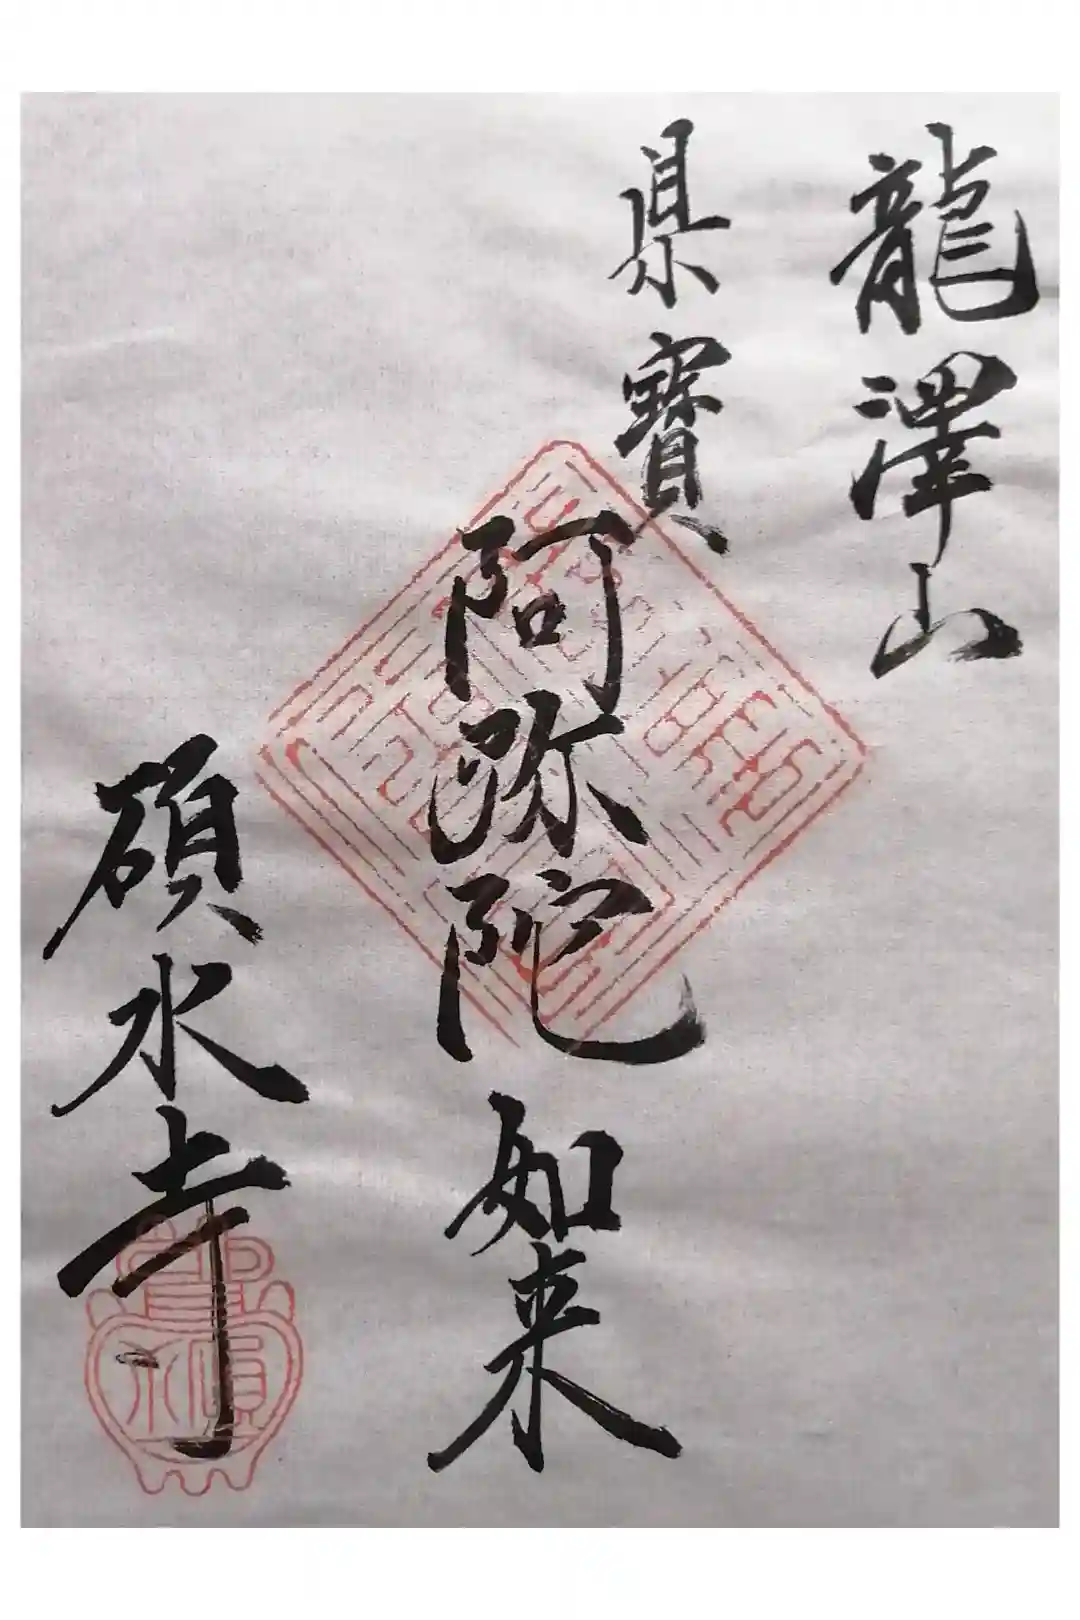 龍澤山
県寳
阿弥陀
如来
碩水寺